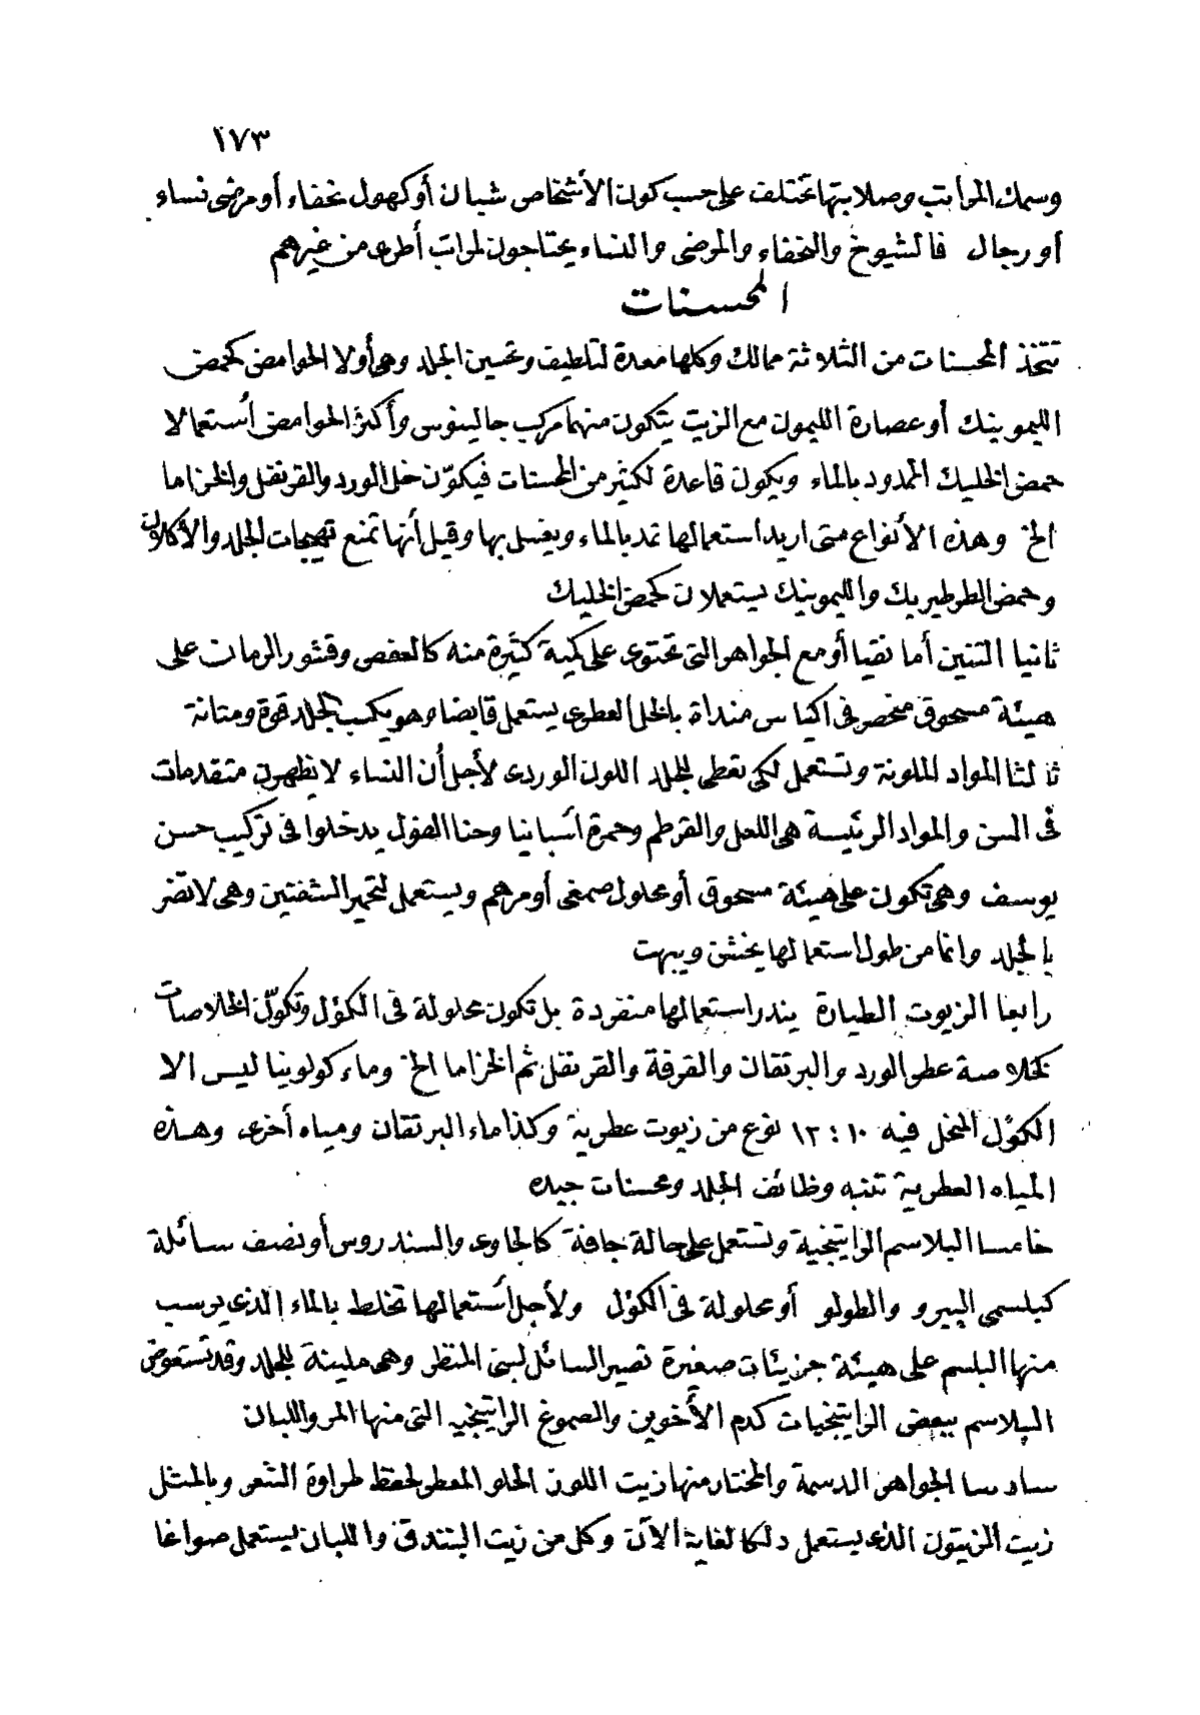 ١٧٣
وسمك المراتب وصلابتها تختلف على حسب كون الأشخاص شبان أو كهول نحفاء أو مرضى نساء
أو رجال فالشيوخ والنحفاء والمرضى والنساء يحتاجون لمراتب أطرى من غيرهم
المحسنات
تتخذ المحسنات من الثلاثة ممالك وكلها معدة لتلطيف وتحسين الجلد وهي أولا الحوامض كحمض
الليمونيك أو عصارة الليمون مع الزيت يتكون منهما مركب جالينوس وأكثر الحوامض استعمالا
حمض الخليك الممدود بالماء ويكون قاعدة لكثير من المحسنات فيكوّن خل الورد والقرنفل والخزاما
الخ وهذه الأنواع متى اريد استعمالها تمد بالماء ويغسل بها وقيل أنها تمنع تهيجات الجلد والأكلان
وحمض الطرطيريك والليمونيك يستعملان كحمض الخليك
ثانيا التنين أما نقيا أو مع الجواهر التى تحتوى على كمية كثيرة منه كالعفص وقشور الرمان على
هيئة مسحوق منحصر فى اكياس منداة بالخل العطرى يستعمل قابضا وهو يكسب الجلد قوة ومتانة
ثالثا المواد الملونة وتستعمل لكى تعطى للجلد اللون الوردى لأجل أن النساء لا يظهرن متقدمات
فى السن والمواد الرئيسة هى اللعل والقرطم وحمرة اسبانيا وحنا الغول يدخلوا فى تركيب حسن
يوسف وهى تكون على هيئة مسحوق أو محلول صمغى أو مرهم ويستعمل لتحمير الشفتين وهى لا تضر
بالجلد وانما من طول استعمالها يخشن ويبهت
رابعا الزيوت الطيارة يندر استعمالها منفردة بل تكون محلولة فى الكؤل وتكوّن الخلاصات
كخلاصة عطر الورد والبرتقان والقرفة والقرنفل ثم الخزاما الخ وماء كولونيا ليس الا
الكؤل المنحل فيه ١٠ : ١٢ نوع من زيوت عطرية وكذا ماء البرتقان ومياه أخرى وهذه
المياه العطرية تنبه وظائف الجلد ومحسنات جيده
خامسا البلاسم الراتينجية وتستعمل على حالة جافة كالجاوى والسندروس أو نصف سائلة
كبلسمى البيرو والطولو أو محلولة فى الكؤل ولأجل استعمالها تخلط بالماء الذى يرسب
منها البلسم على هيئة جزيئات صغيرة تصير السائل لبنى المنظر وهى ملينة للجلد وقد تستعوض
البلاسم ببعض الراتينجيات كدم الأخوين والصموغ الراتينجيه التى منها المر واللبان
سادسا الجواهر الدسمة والمختار منها زيت اللوز الحلو المعطر لحفظ طراوة الشعر وبالمثل
زيت الزيتون الذى يستعمل دلكا لغاية الآن وكل من زيت البندق واللبان يستعمل صواغا